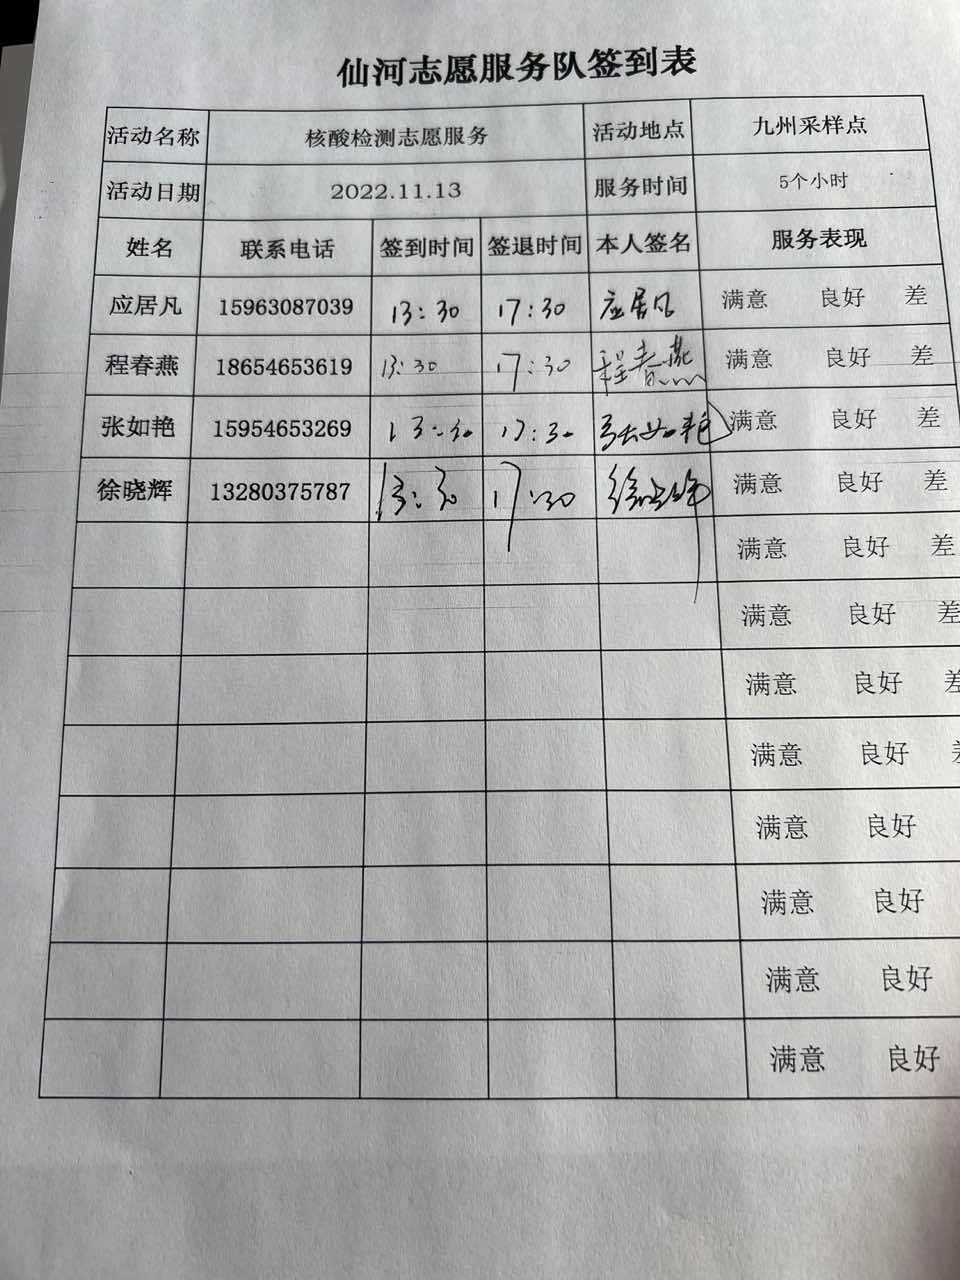 仙河志愿服务队签到表
活动名称 核酸检测志愿服务 活动地点 九州采样点
活动日期 2022.11.13 服务时间 5个小时
姓名 联系电话 签到时间 签退时间 本人签名 服务表现
应居凡 15963087039 13:30 17:30 应居凡 满意 良好 差
程春燕 18654653619 13:30 17:30 程春燕 满意 良好 差
张如艳 15954653269 13:30 17:30 张如艳 满意 良好 差
徐晓辉 13280375787 13:30 17:30 徐晓辉 满意 良好 差
满意 良好 差
满意 良好 差
满意 良好 差
满意 良好 差
满意 良好
满意 良好
满意 良好
满意 良好